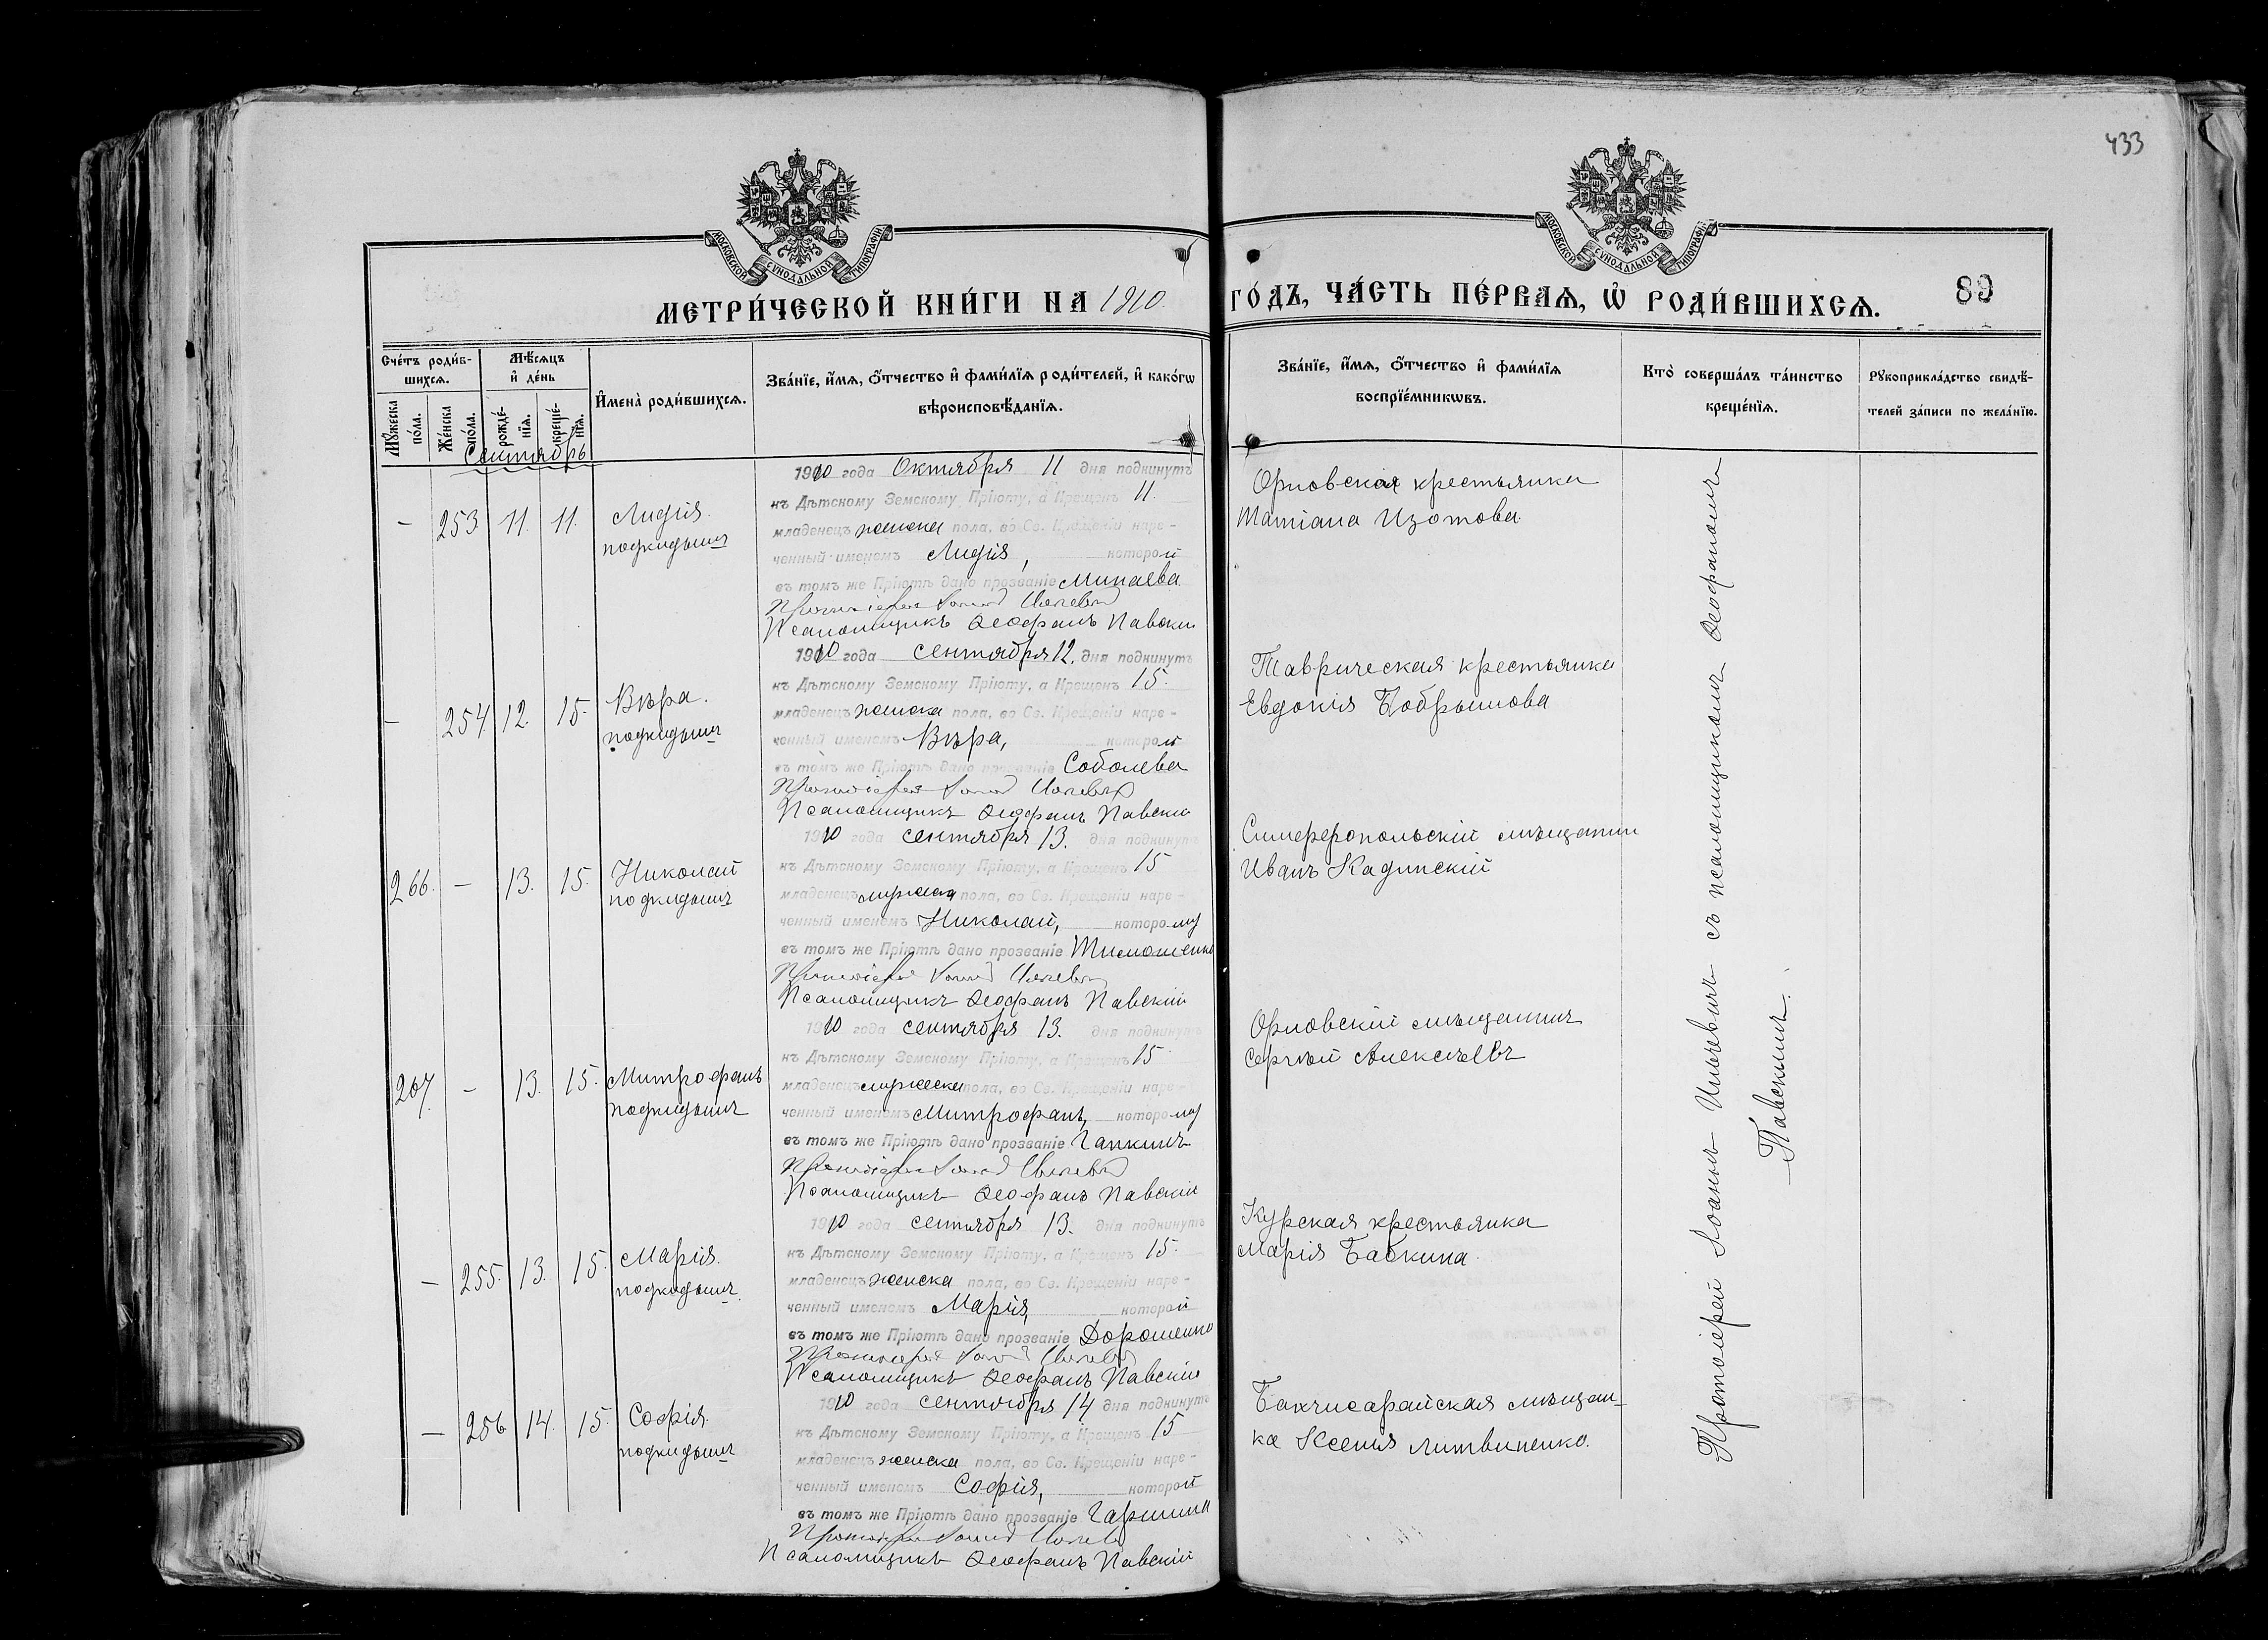 433
МОСКОВСКОЙ СѴНОДАЛЬНОЙ ТИПОГРАФІИ
МОСКОВСКОЙ СѴНОДАЛЬНОЙ ТИПОГРАФІИ
МЕТРИ́ЧЕСКОЙ КНИ́ГИ НА 1910. ГО́ДЪ, ЧА́СТЬ ПЕ́РВАѦ, Ѡ҆ РОДИ́ВШИХСѦ.
89
Сче́тъ роди́в-
шихсѧ.
Мꙋ́жеска по́ла.
Же́нска по́ла.
Мѣ́сѧцъ и҆ де́нь
рожде́-нїѧ.
креще́-нїѧ.
И҆мена̀ роди́вшихсѧ.
Зва́нїе, и҆́мѧ, ѻ҆́тчество и҆ фами́лїѧ роди́телей, и҆ како́гѡ
вѣроисповѣ́данїѧ.
Зва́нїе, и҆́мѧ, ѻ҆́тчество и҆ фами́лїѧ
воспрїе́мникѡвъ.
Кто̀ соверша́лъ та́инство
креще́нїѧ.
Рꙋкоприкла́дство свидѣ́-
телей за́писи по жела́нїю.
Сентябрь
– 253 11. 11. Лидія.
подкидышъ
1910 года Октября 11 дня подкинутъ
къ Дѣтскому Земскому Пріюту, а Крещенъ 11.
младенецъ женска пола, во Св. Крещеніи наре-
ченный именемъ Лидія, которой
въ томъ же Пріютѣ дано прозваніе Минаева
Псаломщикъ Ѳеофанъ Павскій
Орловская крестьянка
Татіана Изотова
– 254 12. 15. Вѣра.
подкидышъ
1910 года сентября 12. дня подкинутъ
къ Дѣтскому Земскому Пріюту, а Крещенъ 15.
младенецъ женска пола, во Св. Крещеніи наре-
ченный именемъ Вѣра, которой
въ томъ же Пріютѣ дано прозваніе Соболева
Псаломщикъ Ѳеофанъ Павскій
Таврическая крестьянка
Евдокія Бобрышова
266. – 13. 15. Николай
подкидышъ
1910 года сентября 13. дня подкинутъ
къ Дѣтскому Земскому Пріюту, а Крещенъ 15
младенецъ мужеска пола, во Св. Крещеніи наре-
ченный именемъ Николай, которому
въ томъ же Пріютѣ дано прозваніе Тимошенко
Псаломщикъ Ѳеофанъ Павскій
Симферопольскій мѣщанин
Иванъ Кадинскій
267. – 13. 15. Митрофанъ
подкидышъ
1910 года сентября 13. дня подкинутъ
къ Дѣтскому Земскому Пріюту, а Крещенъ 15
младенецъ мужеска пола, во Св. Крещеніи наре-
ченный именемъ Митрофанъ, которому
въ томъ же Пріютѣ дано прозваніе Гапкинъ
Псаломщикъ Ѳеофанъ Павскій
Орловскій мѣщанинъ
Сергѣй Алексѣевъ
– 255. 13. 15. Марія.
подкидышъ.
1910 года сентября 13. дня подкинутъ
къ Дѣтскому Земскому Пріюту, а Крещенъ 15.
младенецъ женска пола, во Св. Крещеніи наре-
ченный именемъ Марія, которой
въ томъ же Пріютѣ дано прозваніе Дорошенко
Псаломщикъ Ѳеофанъ Павскій
Курская крестьянка
Марія Бабкина.
– 256 14. 15. Софія.
подкидышъ
1910 года сентября 14 дня подкинутъ
къ Дѣтскому Земскому Пріюту, а Крещенъ 15
младенецъ женска пола, во Св. Крещеніи наре-
ченный именемъ Софія, которой
въ томъ же Пріютѣ дано прозваніе Гаршина
Псаломщикъ Ѳеофанъ Павскій
Бахчисарайская мѣщан-
ка Ксенія Литвиненко.
Протоіерей Іоаннъ Ильевичъ съ псаломщикомъ Ѳеофаномъ
Павскимъ.